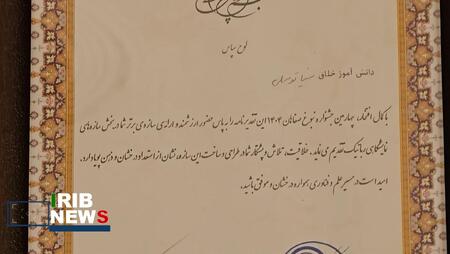 لوح سپاس
دانش آموز خلاق
با کمال افتخار، چهارمین جشنواره نبوغ صفاهان ۱۴۰۴ این تقدیرنامه را به پاس حضور ارزشمند و ارائه‌ی سازه‌ی برتر شما در بخش سازه‌های
نمایشگاهی رباتیک تقدیم می نماید. خلاقیت، تلاش و پشتکار شما در طراحی و ساخت این سازه، نشان از استعداد درخشان و ذهن پویا دارد.
امید است در مسیر علم و فناوری همواره درخشان و موفق باشید.
IRIB
NEWS